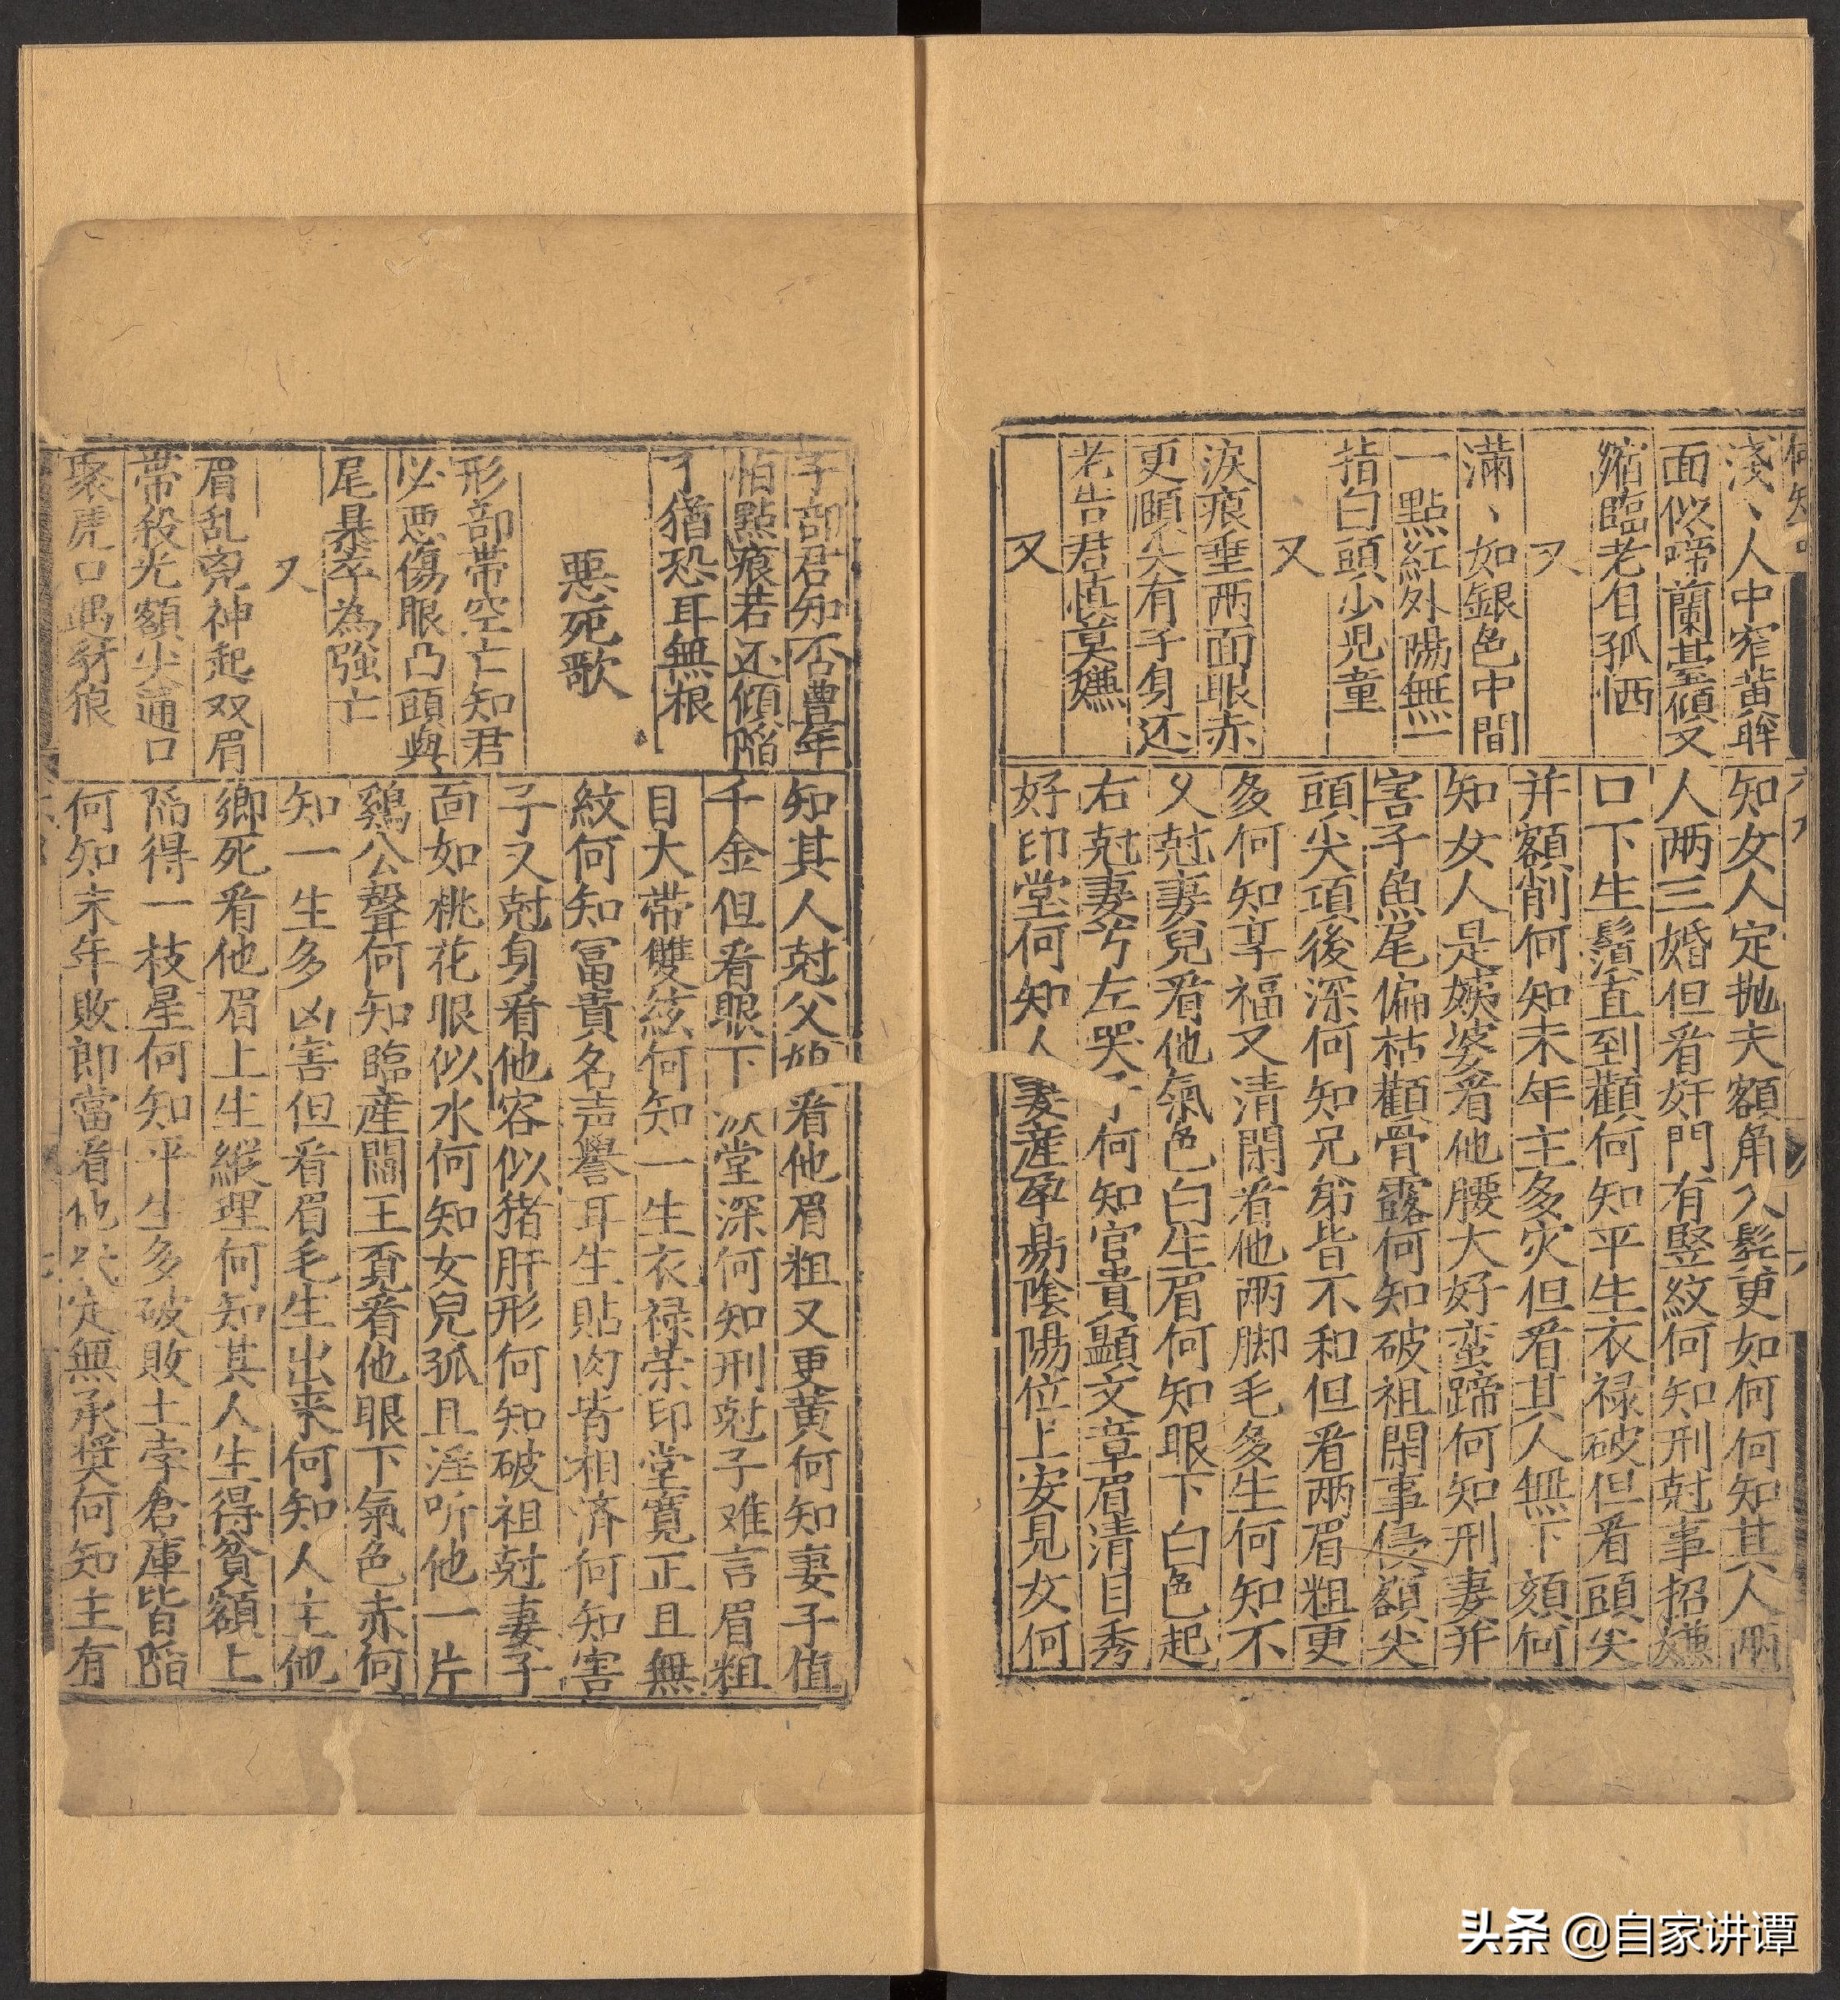 淺〻人中窄黃睟
面似啼蘭臺傾又
縮臨老自孤恓
又
滿〻如銀色中間
一點紅外陽無一
指白頭少児童
又
淚痕垂两面眼赤
更頤尖有子身还
老告君慎莫嫌
又
知女人定抛夫額角入髮更如何何知其人兩
人两三婚但看奸門有竪紋何知刑尅事招嫌
口下生鬚直到顴何知平生衣禄破但看頭尖
并額削何知末年主多灾但看其人無下頦何
知女人是姨婆看他腰大好蛮蹄何知刑妻并
害子魚尾偏枯顴骨露何知破祖閑事侵額尖
頭尖項後深何知兄弟皆不和但看两眉粗更
多何知享福又清閑看他兩脚毛多生何知不
乂尅妻兒看他氣色白生眉何知眼下白色起
右尅妻兮左哭子何知官貴顯文章眉清目秀
好印堂何知人妻産孕易陰陽位上安見女何
子部君知否豊年
怕點痕若还傾陷
了猶恐耳無根
惡死歌
形部带空亡知君
必悪傷眼凸頭與
尾暴卒為強亡
又
眉乱兜神起双眉
带殺光額尖通口
聚虎口遇豺狼
知其人尅父娘看他眉粗又更黄何知妻子值
千金但看眼下堂深何知刑尅子难言眉粗
目大带雙絃何知一生衣禄荣印堂寛正且無
紋何知冨貴名声譽耳生貼肉皆相济何知害
子又尅身看他容似猪肝形何知破祖尅妻子
面如桃花眼似水何知女兒孤且淫听他一片
鷄公聲何知臨産閻王覔看他眼下氣色赤何
知一生多凶害但看眉毛生出来何知人主他
鄉死看他眉上生縱理何知其人生得貧額上
陷得一枝星何知平生多破敗土孛倉庫皆陷
何知末年敗郎當看他定無承奨何知主有
头条 @自家讲谭